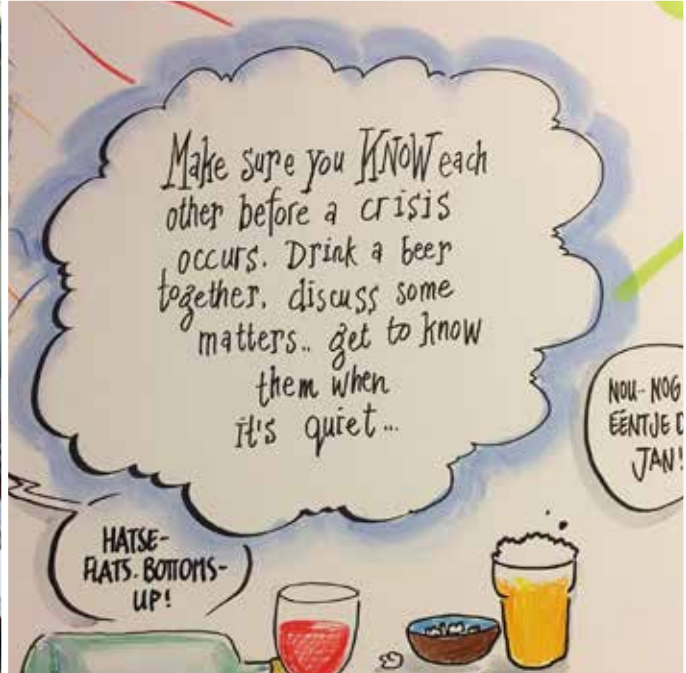 Make sure you KNOW each
other before a crisis
occurs. Drink a beer
together. discuss some
matters.. get to know
them when
it's quiet...
NOU-- NOG
ÉÉNTJE D
JAN!
HATSE-
FLATS. BOTTOMS-
UP!